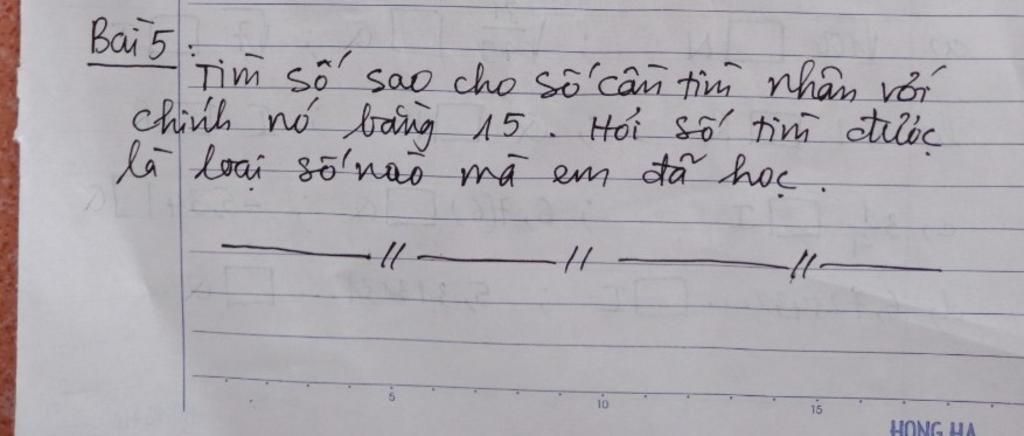 Bài 5:
Tìm số sao cho số cần tìm nhân với
chính nó bằng 15. Hỏi số tìm được
là loại số nào mà em đã học.
5 10 15
HONG HA